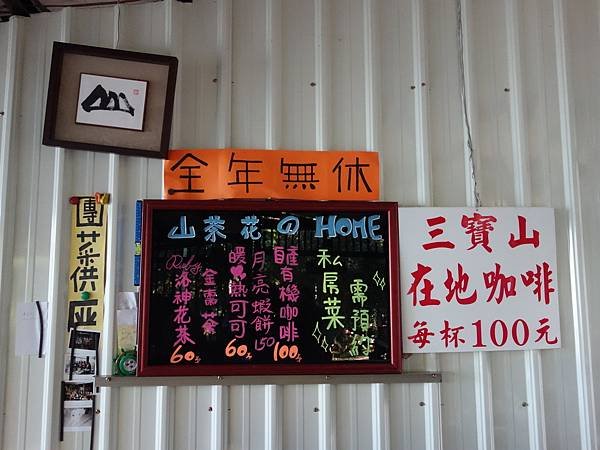 山
全年無休
團菜供座
山茶花@HOME
私房菜
需預約
自產有機咖啡
100元
月亮蝦餅150
暖❤熱可可
60元
金棗茶
Ruby
洛神花茶
60元
三寶山
在地咖啡
每杯100元